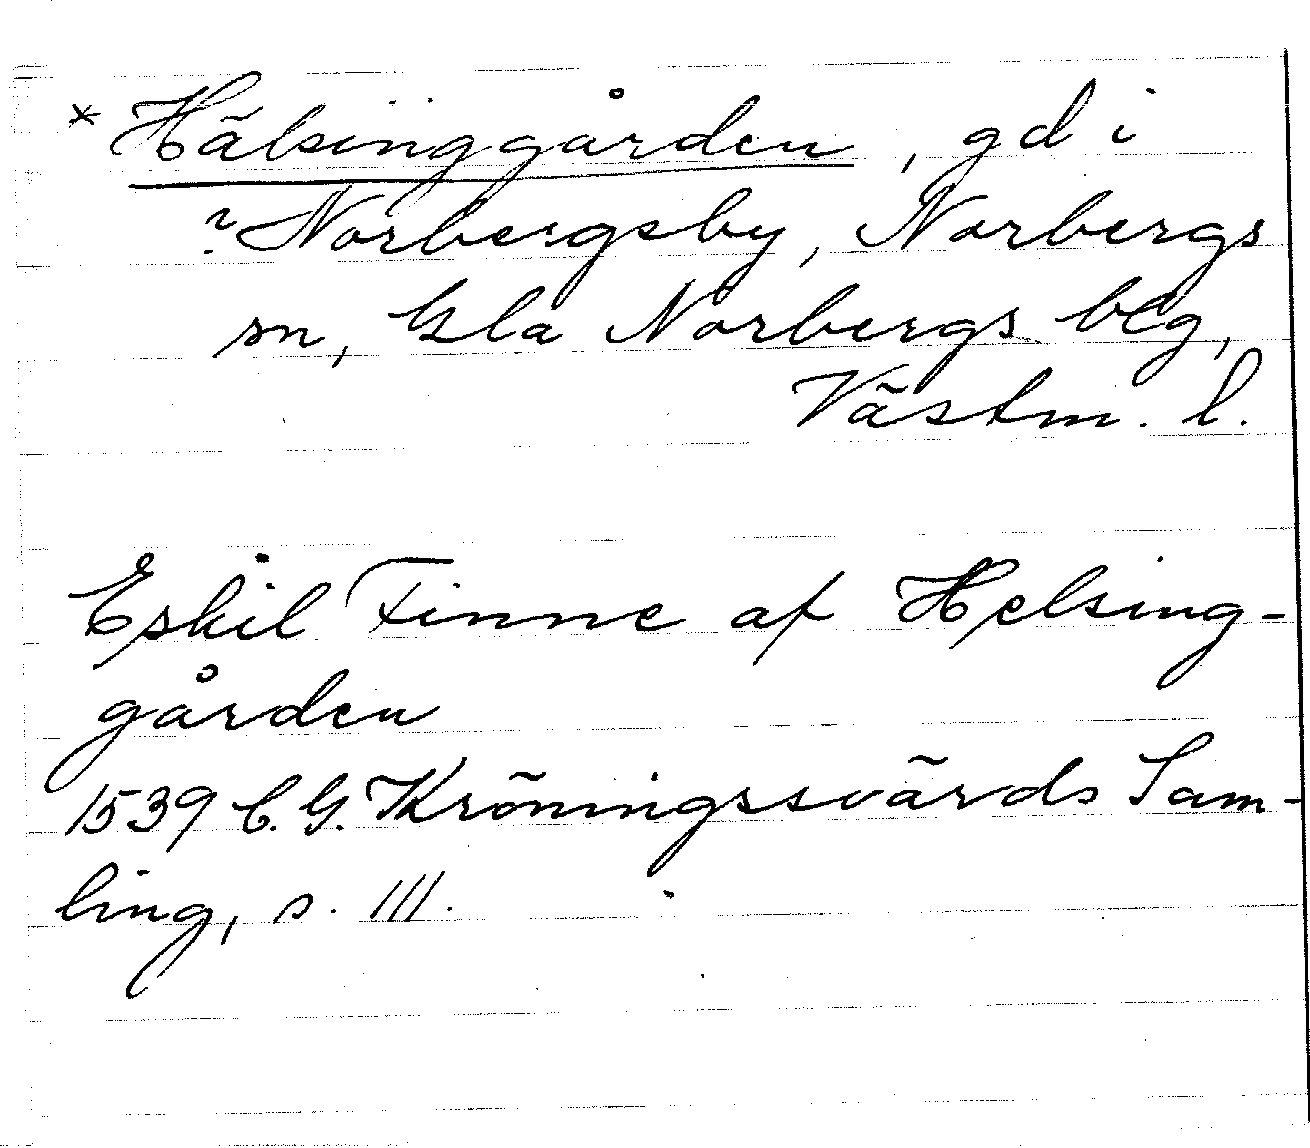 * Hälsinggården, gd i
? Norbergsby, Norbergs
sn, Gla Norbergs blg,
Västm. l.
Eskil Finne af Helsing-
gården
1539 C. G. Kröningssvärds Sam-
ling, s. 111.